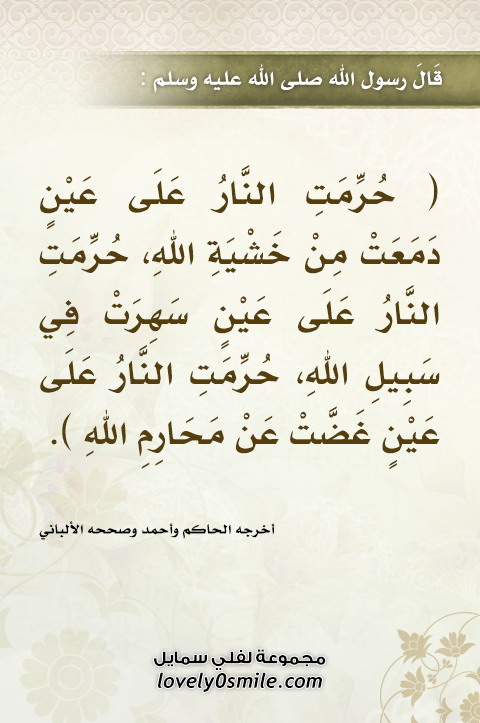 قَالَ رسول الله صلى الله عليه وسلم :
( حُرِّمَتِ النَّارُ عَلَى عَيْنٍ
دَمَعَتْ مِنْ خَشْيَةِ اللهِ، حُرِّمَتِ
النَّارُ عَلَى عَيْنٍ سَهِرَتْ فِي
سَبِيلِ اللهِ، حُرِّمَتِ النَّارُ عَلَى
عَيْنٍ غَضَّتْ عَنْ مَحَارِمِ اللهِ ).
أخرجه الحاكم وأحمد وصححه الألباني
مجموعة لفلي سمايل
lovely0smile.com